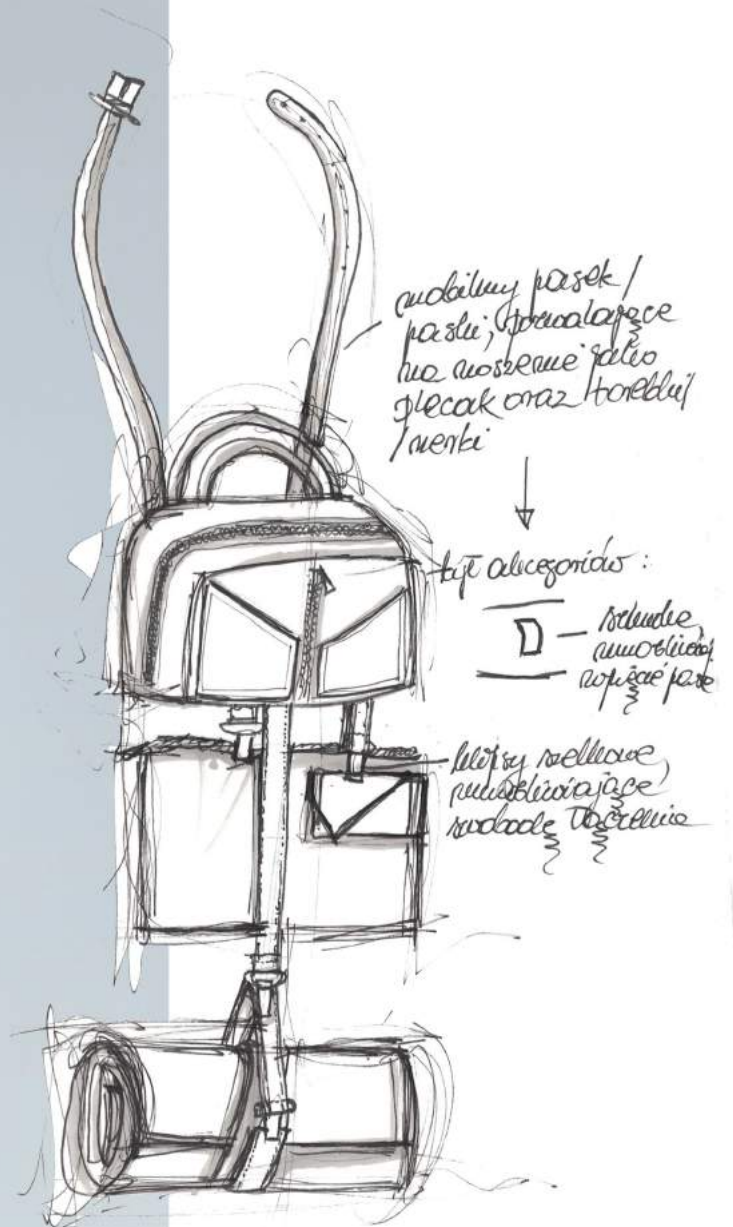 mobilny pasek /
paski, pozwalające
na noszenie jako
plecak oraz torebki /
/ nerki
tył akcesoriów :
szlufka,
umożliwiają
wpięcie
klipsy szelkowe,
umożliwiające
swobodę